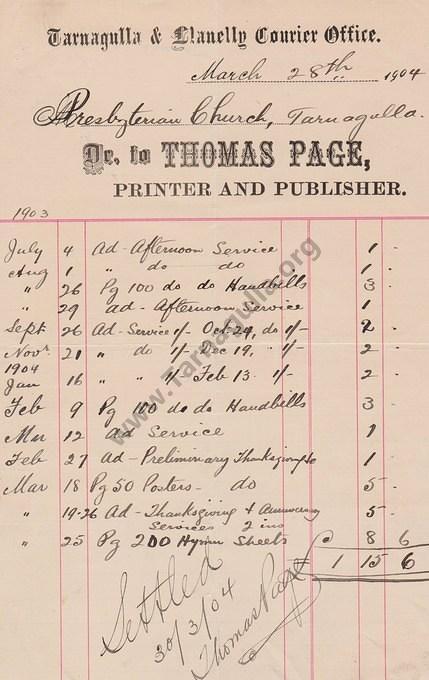 Tarnagulla & Llanelly Courier Office.
March 28th 1904
Presbyterian Church, Tarnagulla.
Dr. to THOMAS PAGE,
PRINTER AND PUBLISHER.
1903
July 4 Ad - Afternoon Service 1 -
Aug 1 " do do 1 -
" 26 Pg 100 do do Handbills 3 -
" 29 ad - Afternoon Service 1 -
Sept 26 Ad - Service 1/- Oct 24, do 1/- 2 -
Novr 21 " do 1/- Dec 19, " 1/- 2 -
1904
Jan 16 " " 1/- Feb 13 - 1/- 2 -
Feb 9 Pg 100 do do Handbills 3 -
Mar 12 Ad Service 1 -
Feb 27 Ad - Preliminary Thanksgiving 1 -
Mar 18 Pg 50 Posters - do 5 -
" 19-26 Ad - Thanksgiving & Anniversary 5 -
Services 2 ins
" 25 Pg 200 Hymn Sheets 8 6
£ 1 15 6
Settled
30/3/04
Thomas Page
www.Tarnagulla.org